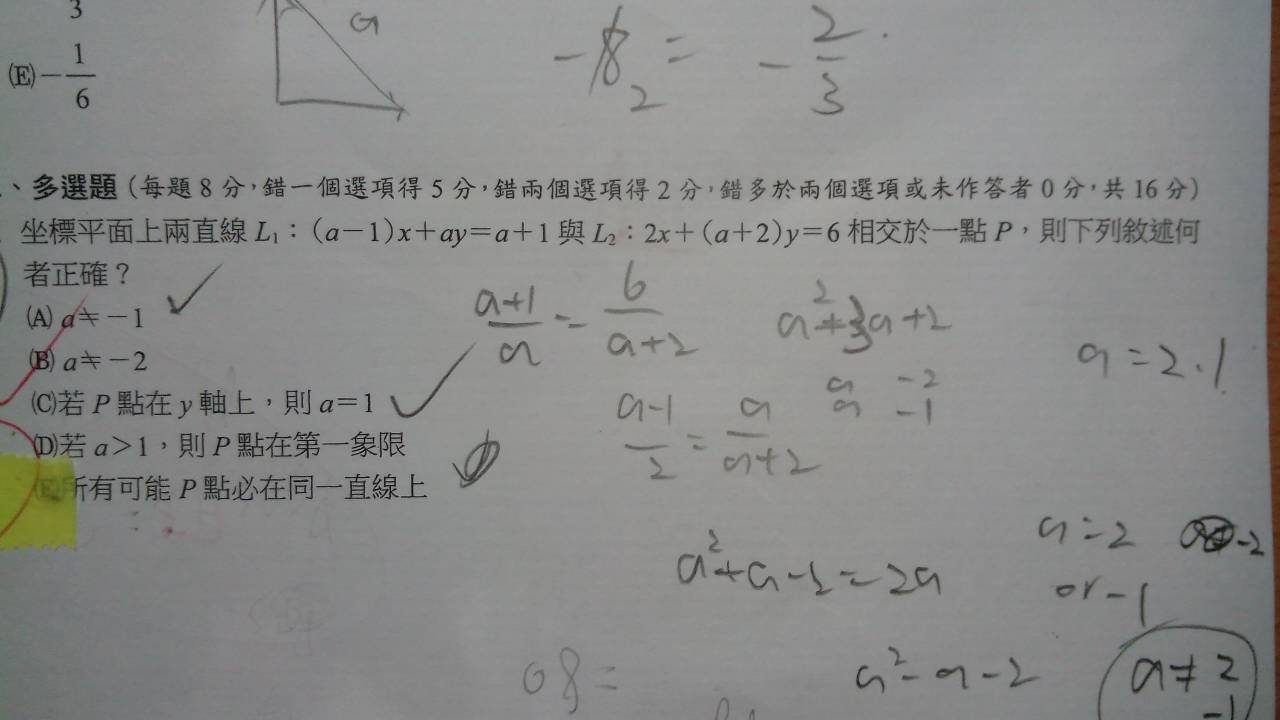 3
G
(E)-1/6
-8/2 = -2/3
、多選題(每題8分,錯一個選項得5分,錯兩個選項得2分,錯多於兩個選項或未作答者0分,共16分)
坐標平面上兩直線L₁:(a-1)x+ay=a+1與L₂:2x+(a+2)y=6相交於一點P,則下列敘述何
者正確?
(A) a≠-1
(B) a≠-2
(C)若P點在y軸上,則a=1
(D)若a>1,則P點在第一象限
(E)所有可能P點必在同一直線上
(a+1)/a = 6/(a+2)
a²+3a+2
a -2
a -1
a=2.1
(a-1)/2 = a/(a+2)
a²+a-2=2a
a=2
or -1
-2
a²-a-2
a≠2
-1
08=